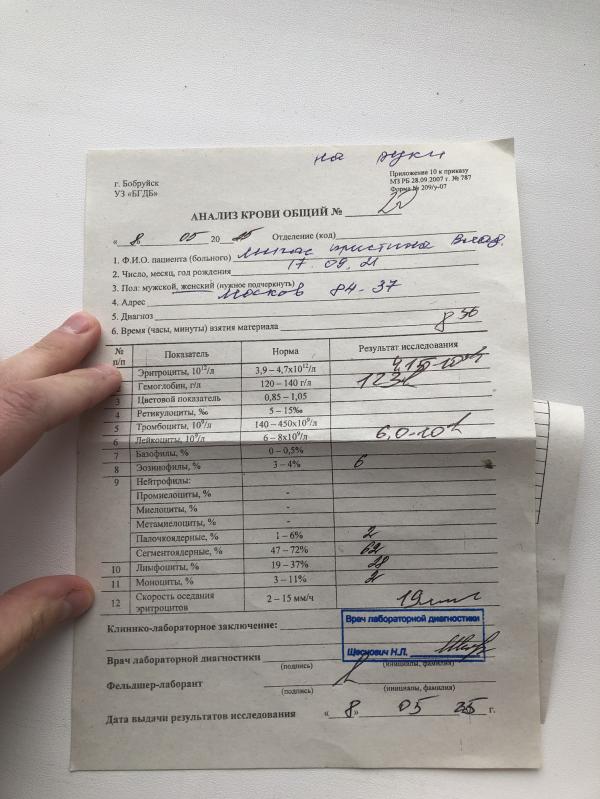 на руки
г. Бобруйск
УЗ «БГДБ»
Приложение 10 к приказу
МЗ РБ 28.09.2007 г. № 787
Форма № 209/у-07
АНАЛИЗ КРОВИ ОБЩИЙ №
« 8 05 20 Отделение (код)
1. Ф.И.О. пациента (больного) Кристина Влад.
2. Число, месяц, год рождения 17. 09. 21
3. Пол: мужской, женский (нужное подчеркнуть)
4. Адрес Москов 84-37
5. Диагноз
6. Время (часы, минуты) взятия материала 8 30
№ п/п Показатель Норма Результат исследования
Эритроциты, 10¹²/л 3,9 – 4,7х10¹²/л
Гемоглобин, г/л 120 – 140 г/л 123
3 Цветовой показатель 0,85 – 1,05
4 Ретикулоциты, ‰ 5 – 15‰
5 Тромбоциты, 10⁹/л 140 – 450х10⁹/л
6 Лейкоциты, 10⁹/л 6 – 8х10⁹/л 6,0
7 Базофилы, % 0 – 0,5%
8 Эозинофилы, % 3 – 4% 6
9 Нейтрофилы:
Промиелоциты, % -
Миелоциты, % -
Метамиелоциты, % -
Палочкоядерные, % 1 – 6% 2
Сегментоядерные, % 47 – 72% 62
10 Лимфоциты, % 19 – 37% 28
11 Моноциты, % 3 – 11% 2
12 Скорость оседания эритроцитов 2 – 15 мм/ч 19мм/ч
Клинико-лабораторное заключение:
Врач лабораторной диагностики
Врач лабораторной диагностики
(подпись) (инициалы, фамилия)
Фельдшер-лаборант
(подпись) (инициалы, фамилия)
Дата выдачи результатов исследования « 8 » 05 25 г.